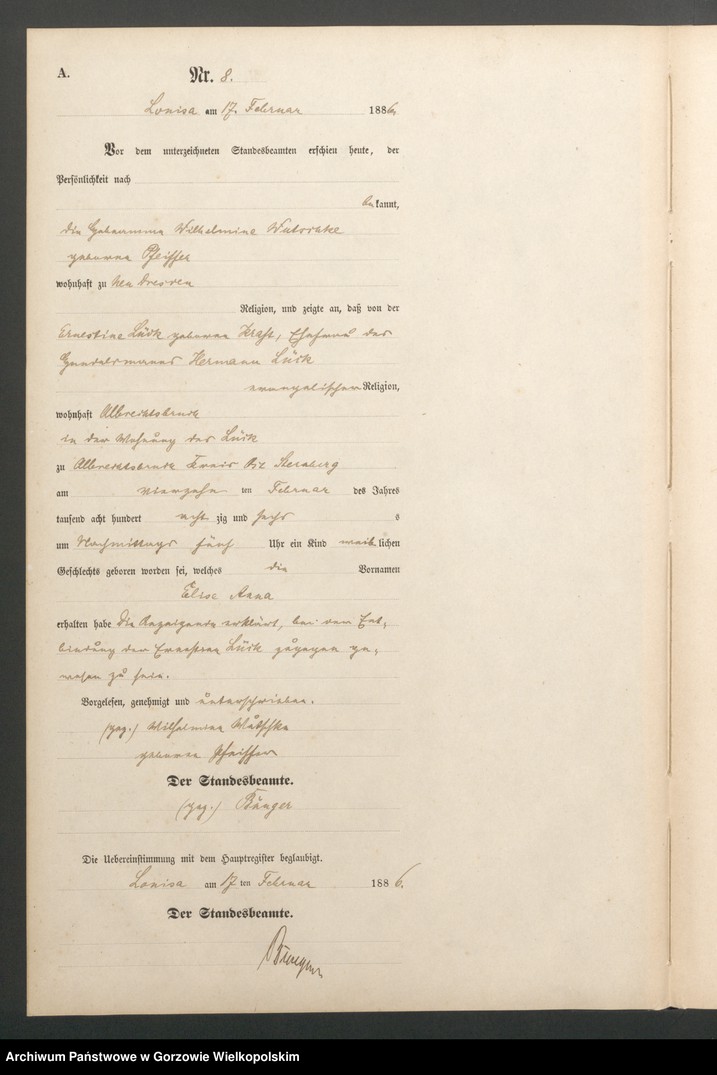 A.
Nr. 8.
Louisa am 17. Februar 1886.
Vor dem unterzeichneten Standesbeamten erschien heute, der
Persönlichkeit nach
bekannt,
die Hebamme Wilhelmine
geborene Pfeiffer
wohnhaft zu Neu Dresden
Religion, und zeigte an, daß von der
Ernestine Lück geborene Kraft, Ehefrau des
Handelsmanns Hermann Lück
evangelischer Religion,
wohnhaft Albrechtsbruch
in der Wohnung des Lück
zu Albrechtsbruch Kreis Ost Sternberg
am vierzehn ten Februar des Jahres
tausend acht hundert acht zig und sechs s
um Nachmittags fünf Uhr ein Kind weiblichen
Geschlechts geboren worden sei, welches die Vornamen
Elise Anna
erhalten habe Die Anzeigende erklärt, bei der Ent-
bindung der Lück zugegen ge-
wesen zu sein.
Vorgelesen, genehmigt und unterschrieben.
(gez.) Wilhelmine
geborene Pfeiffer
Der Standesbeamte.
(gez.) Bünger
Die Uebereinstimmung mit dem Hauptregister beglaubigt.
Louisa am 17 ten Februar 1886.
Der Standesbeamte.
Bünger
Archiwum Państwowe w Gorzowie Wielkopolskim